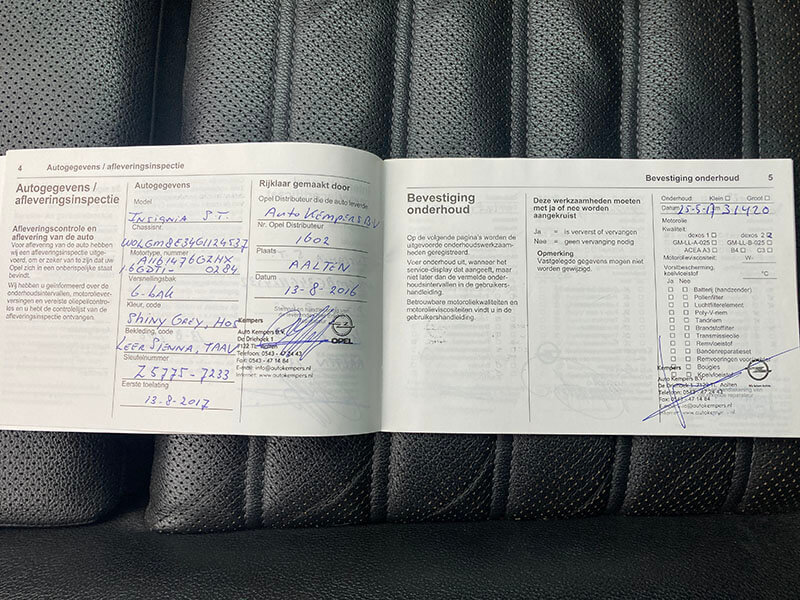 4 Autogegevens / afleveringsinspectie
Autogegevens /
afleveringsinspectie
Aflevercontrole en
aflevering van de auto
Voor aflevering van de auto hebben
wij een afleveringsinspectie uitge-
voerd, om er zeker van te zijn dat uw
Opel zich in een onberispelijke staat
bevindt.
Wij hebben u geïnformeerd over de
onderhoudsintervallen, motoroliever-
versingen en vereiste oliepeilcontro-
les en u hebt de controlelijst van de
aflevering ontvangen.
Autogegevens
Model
INSIGNIA ST.
Chassisnr.
Motortype, nummer
16GDTI- 0284
Versnellingsbak
6-BAK
Kleur, code
SHINY GREY,
Bekleding, code
LEER SIENNA, TAAV
Sleutelnummer
Z5775-7233
Eerste toelating
13-8-2017
Rijklaar gemaakt door
Opel Distributeur die de auto leverde
AUTO KEMPERS B.V
Nr. Opel Distributeur
1602
Plaats
AALTEN
Datum
13-8-2016
Kempers
Auto Kempers B.V.
De Driehoek 1
7122 TL Aalten
Telefoon: 0543 - 47 24 43
Fax: 0543 - 47 14 84
E-mail: info@autokempers.nl
Internet: www.autokempers.nl
OPEL
Bevestiging onderhoud 5
Bevestiging
onderhoud
Op de volgende pagina's worden de
uitgevoerde onderhoudswerkzaam-
heden geregistreerd.
Voer onderhoud uit, wanneer het
service-display dat aangeeft, maar
niet later dan de vermelde onder-
houdsintervallen in de gebruikers-
handleiding.
Betrouwbare motoroliekwaliteiten en
motorolieviscositeiten vindt u in de
gebruikershandleiding.
Deze werkzaamheden moeten
met ja of nee worden
aangekruist
Ja = is ververst of vervangen
Nee = geen vervanging nodig
Opmerking
Vastgelegde gegevens mogen niet
worden gewijzigd.
Onderhoud: Klein Groot
Datum 25-5-17 31420
Motorolie
Kwaliteit:
dexos 1 dexos 2
GM-LL-A-025 GM-LL-B-025
ACEA A3 B4 C3
Motorolieviscositeit: W-
Vorstbescherming,
koelvloeistof °C
Ja Nee
Batterij (handzender)
Pollenfilter
Luchtfilterelement
Poly-V-riem
Tandriem
Brandstoffilter
Transmissieolie
Remvloeistof
Bandenreparatieset
Remvoeringen voor
Bougies
Koelvloeistof
Kempers
Auto Kempers B.V.
De Driehoek 1 7122 TL Aalten
Telefoon: 0543 - 47 24 43
Fax: 0543 - 47 14 84
E-mail: info@autokempers.nl
Internet: www.autokempers.nl